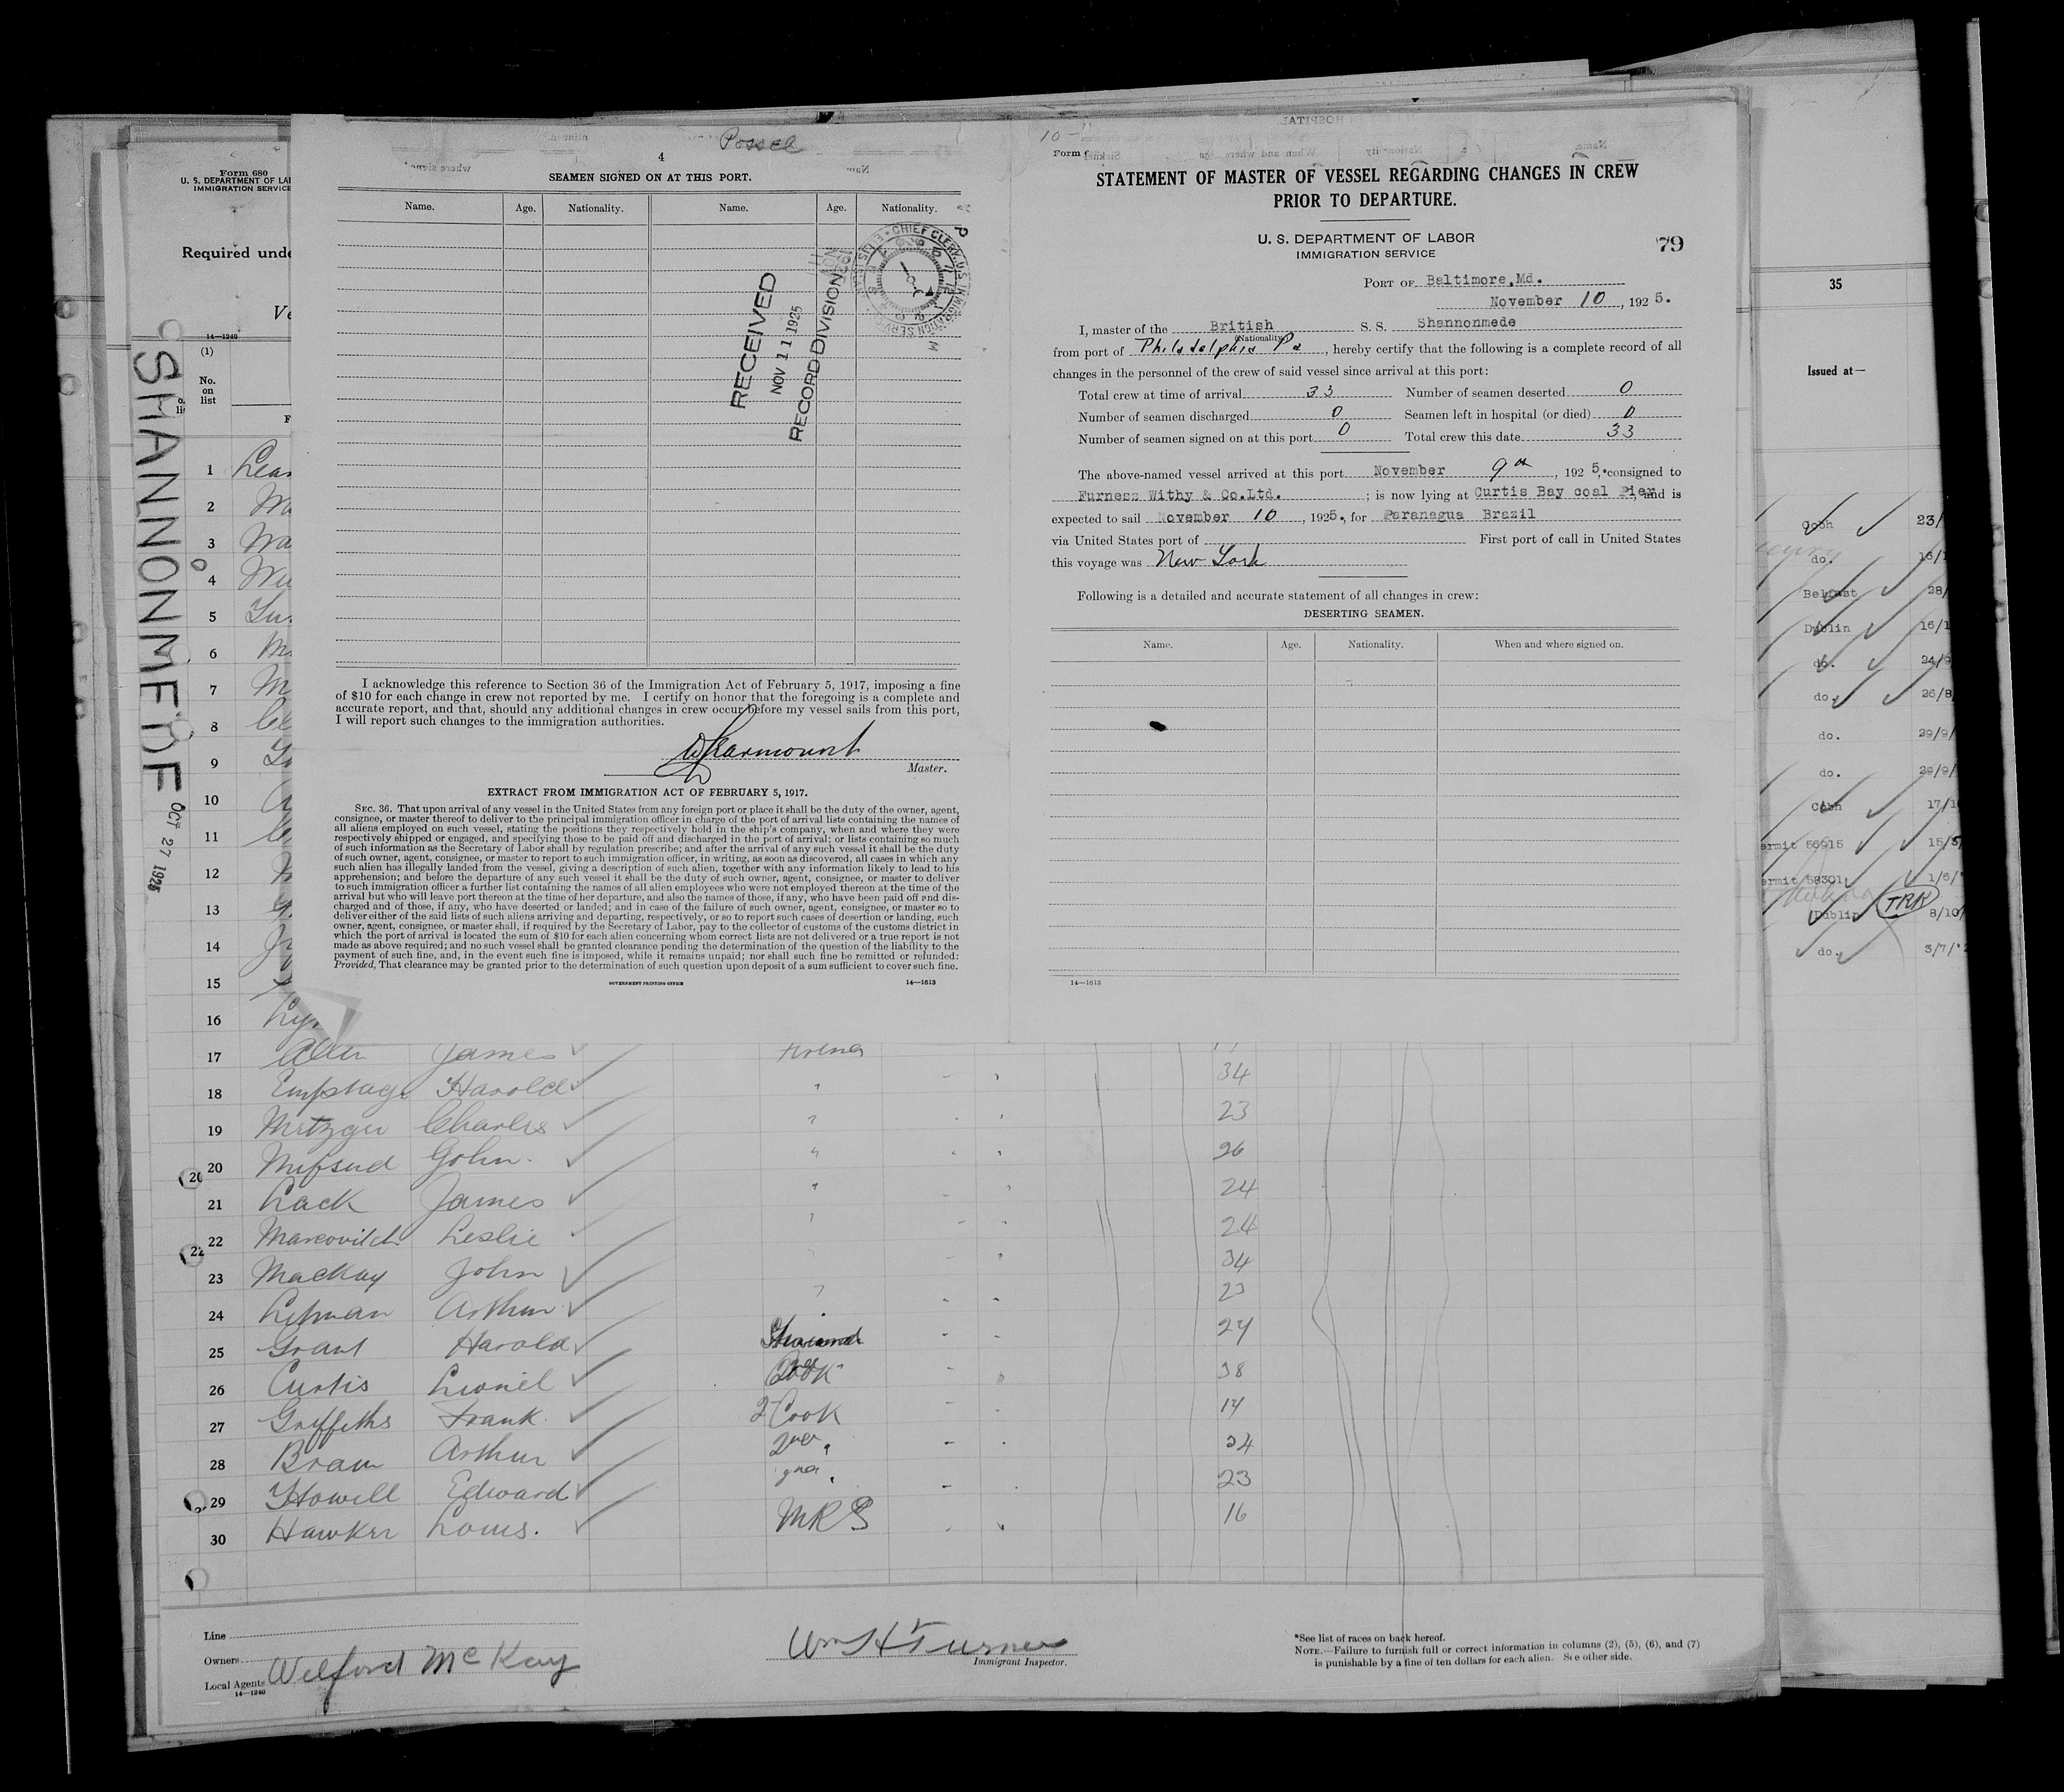 Form 680
U. S. DEPARTMENT OF LA
IMMIGRATION SERVICE
Required unde
Ve
14—1240
(1)
No.
on
list
SHANNONMEDE
OCT 27 1925
4
SEAMEN SIGNED ON AT THIS PORT.
Name. Age. Nationality. Name. Age. Nationality.
RECEIVED
NOV 11 1925
RECORD DIVISION
I acknowledge this reference to Section 36 of the Immigration Act of February 5, 1917, imposing a fine
of $10 for each change in crew not reported by me. I certify on honor that the foregoing is a complete and
accurate report, and that, should any additional changes in crew occur before my vessel sails from this port,
I will report such changes to the immigration authorities.
Master.
EXTRACT FROM IMMIGRATION ACT OF FEBRUARY 5, 1917.
SEC. 36. That upon arrival of any vessel in the United States from any foreign port or place it shall be the duty of the owner, agent,
consignee, or master thereof to deliver to the principal immigration officer in charge of the port of arrival lists containing the names of
all aliens employed on such vessel, stating the positions they respectively hold in the ship's company, when and where they were
respectively shipped or engaged, and specifying those to be paid off and discharged in the port of arrival; or lists containing so much
of such information as the Secretary of Labor shall by regulation prescribe; and after the arrival of any such vessel it shall be the duty
of such owner, agent, consignee, or master to report to such immigration officer, in writing, as soon as discovered, all cases in which any
such alien has illegally landed from the vessel, giving a description of such alien, together with any information likely to lead to his
apprehension; and before the departure of any such vessel it shall be the duty of such owner, agent, consignee, or master to deliver
to such immigration officer a further list containing the names of all alien employees who were not employed thereon at the time of the
arrival but who will leave port thereon at the time of her departure, and also the names of those, if any, who have been paid off and dis-
charged and of those, if any, who have deserted or landed; and in case of the failure of such owner, agent, consignee, or master so to
deliver either of the said lists of such aliens arriving and departing, respectively, or so to report such cases of desertion or landing, such
owner, agent, consignee, or master shall, if required by the Secretary of Labor, pay to the collector of customs of the customs district in
which the port of arrival is located the sum of $10 for each alien concerning whom correct lists are not delivered or a true report is not
made as above required; and no such vessel shall be granted clearance pending the determination of the question of the liability to the
payment of such fine, and, in the event such fine is imposed, while it remains unpaid; nor shall such fine be remitted or refunded:
Provided, That clearance may be granted prior to the determination of such question upon deposit of a sum sufficient to cover such fine.
GOVERNMENT PRINTING OFFICE 14—1613
Form
STATEMENT OF MASTER OF VESSEL REGARDING CHANGES IN CREW
PRIOR TO DEPARTURE.
U. S. DEPARTMENT OF LABOR
IMMIGRATION SERVICE
79
PORT OF Baltimore, Md.
November 10, 1925.
I, master of the British S. S. Shannonmede
(Nationality)
from port of Philadelphia Pa, hereby certify that the following is a complete record of all
changes in the personnel of the crew of said vessel since arrival at this port:
Total crew at time of arrival 33 Number of seamen deserted 0
Number of seamen discharged 0 Seamen left in hospital (or died) 0
Number of seamen signed on at this port 0 Total crew this date 33
The above-named vessel arrived at this port November 9th, 1925, consigned to
Furness Withy & Co.Ltd. ; is now lying at Curtis Bay coal Pier, and is
expected to sail November 10, 1925., for Paranagua Brazil
via United States port of First port of call in United States
this voyage was New York
Following is a detailed and accurate statement of all changes in crew:
DESERTING SEAMEN.
Name. Age. Nationality. When and where signed on.
14—1613
35
Issued at—
Cobh 23/
do. 16/1
Belfast 28/
Dublin 16/1
do. 24/9
do. 26/8
do. 29/9/
do. 29/9/
Cobh 17/1
ermit 56915 15/5
ermit 58301 1/6/
Dublin TRK 8/10/
do. 3/7/
1
2
3
4
5
6
7
8
9
10
11
12
13
14
15
16
17 Allen James
18 Empstage Harold 34
19 Metzger Charles 23
20 Mifsud John 26
21 Lack James 24
22 Marcovitch Leslie 24
23 MacKay John 34
24 Lipman Arthur 23
25 Grant Harold 24
26 Curtis Lionel Cook 38
27 Griffiths Frank 2 Cook
28 Braun Arthur
29 Howell Edward 23
30 Hawker Louis. MRS 16
Line
Owners
Local Agents Welford McKay
14—1240
Wm H Turner
Immigrant Inspector.
*See list of races on back hereof.
NOTE.—Failure to furnish full or correct information in columns (2), (5), (6), and (7)
is punishable by a fine of ten dollars for each alien. See other side.